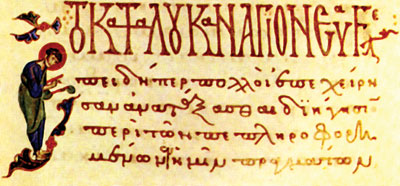 ΚΑΤΑ ΛΟΥΚΑΝ ΑΓΙΟΝ ΕΥΑΓΓΕ
πειδήπερ πολλοὶ ἐπεχείρη
σαν ἀνατάξασθαι διήγησιν
περὶ τῶν πεπληροφορη
μένων ἐν ἡμῖν πραγμάτων